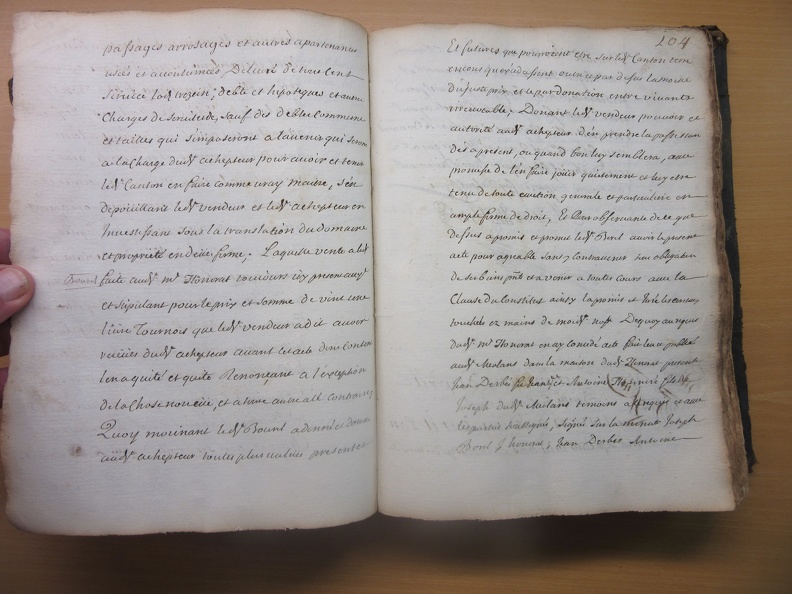 passages arrosages et autres apartenances
uzés et accoutumées, Delivré de tous cent
service lods trezein, debte et hipoteques et autre
Charges de Servitude, Sauf des debtes Commune
et tailles qui S'imposeront a l'avenir qui seront
a la Charge dud achepteur pour avoir et tenir
led Canton en faire comme vray Maitre, S'en
depouillant led vendeur et led achepteur en
Investissant Sous la translation du domaine
et proprieté en deüe forme. Laquelle vente a led
Bourel faite aud mr Honorat toujours icy present
et stipulant pour le prix et Somme de vint une
livre Tournois que led vendeur a dit avoir
receües dud achepteur avant cet acte dont Content
l'en a quité et quite Renonçant a l'exception
de la Chose non eüe, et a tout autre a ce Contraire
Quoy moienant led Bourel a donné et donne
aud achepteur toutes plus values presentes
104
Et futures que pourroient etre Sur led Canton
encore qu'excedassent outre et par dessus la moitié
du juste prix et ce par donation entre vivants
irrevocable, Donant led vendeur pouvoir et
autorité aud achepteur d'en prendre la possession
dés a present, ou quand bon luy semblera, avec
promesse de l'en faire jouir quietement et luy etre
tenu de toute eviction generale et particuliere en
ample forme de droit, Et Pour observance de ce que
dessus a promis et promet led Bourel avoir le present
acte pour agreable Sans y Contrevenir Sou obligation
de ses biens pnts et avenir a toutes Cours avec la
Clause du Constitut ainsy l'a promis et Juré
touchées ez mains de moid nore Dequoy
dud mr Honorat en ay Concedé acte fait et publié
aud Meolans dans la maison dud Honorat presents
Jean Derbes et Antoine Honnoré fils de
Joseph dud Meolans temoins a requis et avec
les parties Soussignés, Signés Sur la minute Joseph
Borel J honorat, Jean Derbes Antoine